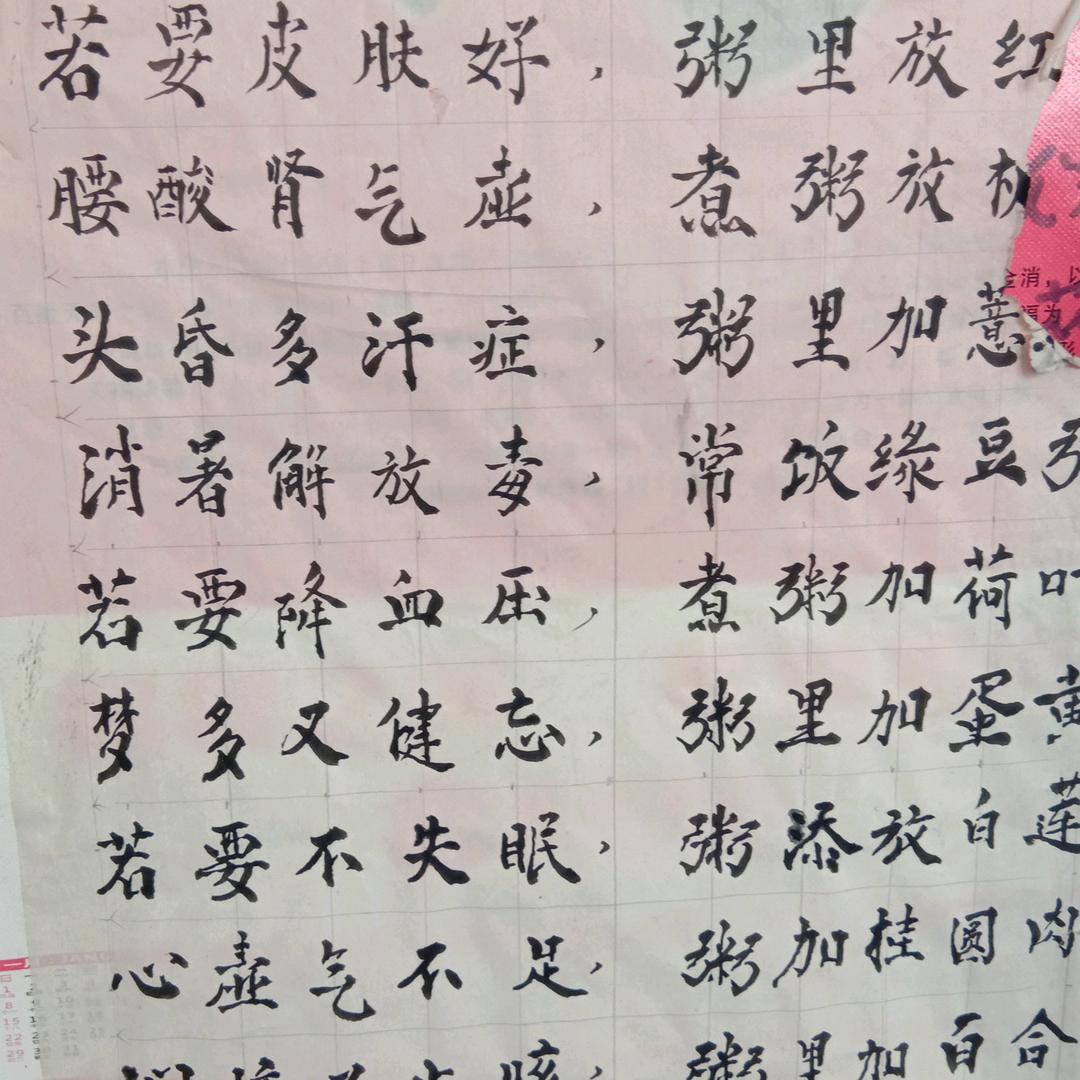 若要皮肤好，粥里放红
腰酸肾气虚，煮粥放板
头昏多汗症，粥里加薏
消暑解放毒，常饭绿豆
若要降血压，煮粥加荷叶
梦多又健忘，粥里加蛋黄
若要不失眠，粥添放白莲
心虚气不足，粥加桂圆肉
粥里加百合
消，以
福为
1
8
15
22
29